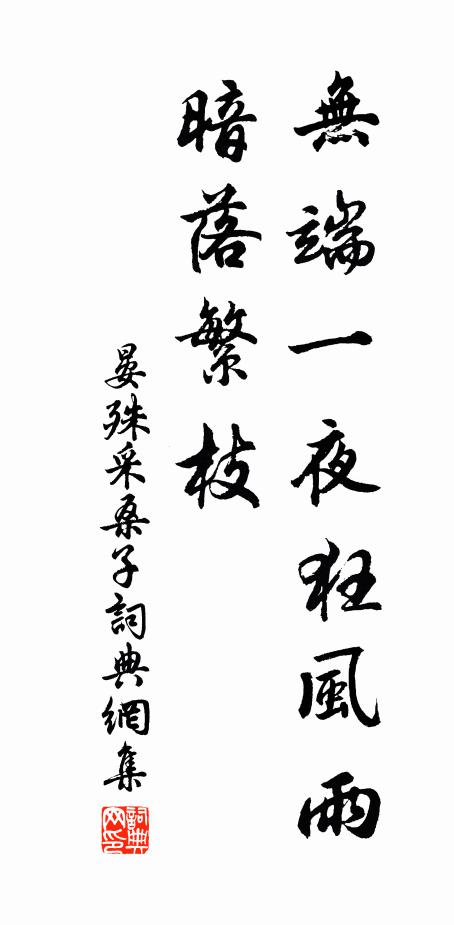 無端一夜狂風雨
暗落繁枝
晏殊采桑子詞典網集
詞典
网印